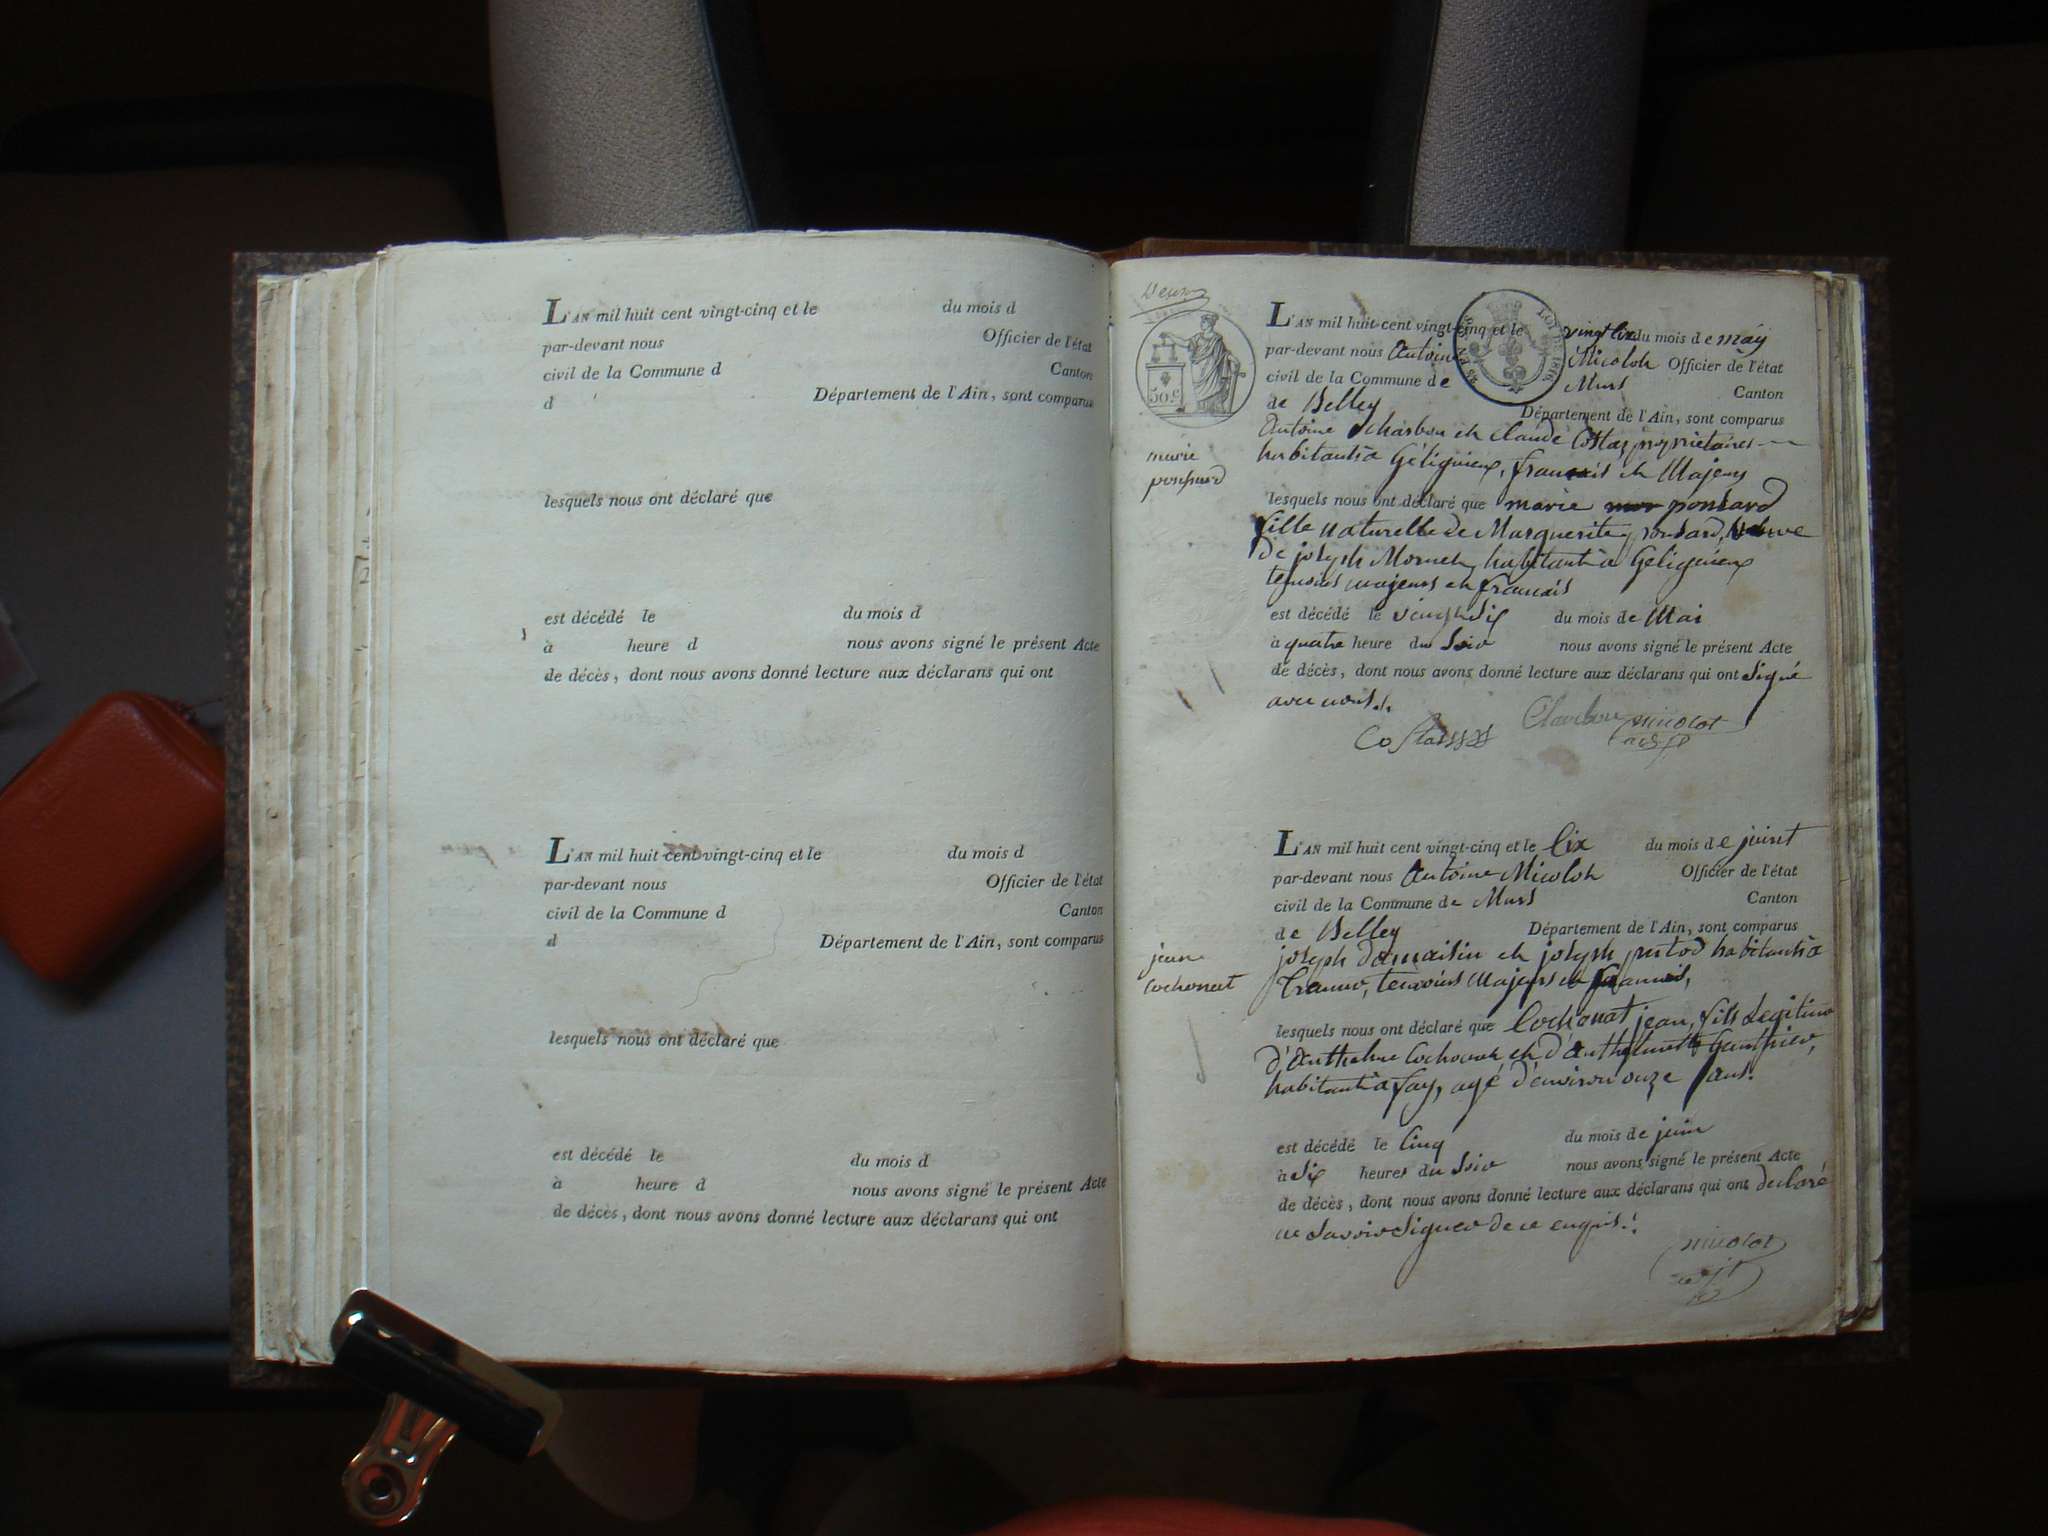 L'AN mil huit cent vingt-cinq et le du mois d
par-devant nous Officier de l'état
civil de la Commune d Canton
d Département de l'Ain, sont comparus
lesquels nous ont déclaré que
est décédé le du mois d
à heure d nous avons signé le présent Acte
de décès, dont nous avons donné lecture aux déclarans qui ont
L'AN mil huit cent vingt-cinq et le du mois d
par-devant nous Officier de l'état
civil de la Commune d Canton
d Département de l'Ain, sont comparus
lesquels nous ont déclaré que
est décédé le du mois d
à heure d nous avons signé le présent Acte
de décès, dont nous avons donné lecture aux déclarans qui ont
50.c
LOI DE 1816
L'AN mil huit cent vingt-cinq et le du mois de may
par-devant nous Antoine Micolot Officier de l'état
civil de la Commune de Murs Canton
de Belley Département de l'Ain, sont comparus
Antoine Charbon et Claude Costaz propriétaires
habitant à Gélignieux, francais et Majeurs
marie
ponsard
lesquels nous ont déclaré que marie ponsard
fille naturelle de Marguerite ponsard, veuve
de joseph Mornet, habitant à Gelignieux
temoins majeurs et francais
est décédé le vingt Six du mois de Mai
à quatre heure du Soir nous avons signé le présent Acte
de décès, dont nous avons donné lecture aux déclarans qui ont Signé
avec nous
micolot
L'AN mil huit cent vingt-cinq et le Six du mois de juin
par-devant nous Antoine Micolot Officier de l'état
civil de la Commune de Murs Canton
de Belley Département de l'Ain, sont comparus
joseph et joseph habitant à
temoins Majeurs et francais,
jean
cochonat
lesquels nous ont déclaré que Cochonat jean, fils Legitime
d'Anthelme Cochonat et d'Anthelmette Gauthier,
habitant à fay, agé d'environ onze ans.
est décédé le Cinq du mois de juin
à Six heures du Soir nous avons signé le présent Acte
de décès, dont nous avons donné lecture aux déclarans qui ont declaré
ne Savoir Signer de ce enquis.
micolot